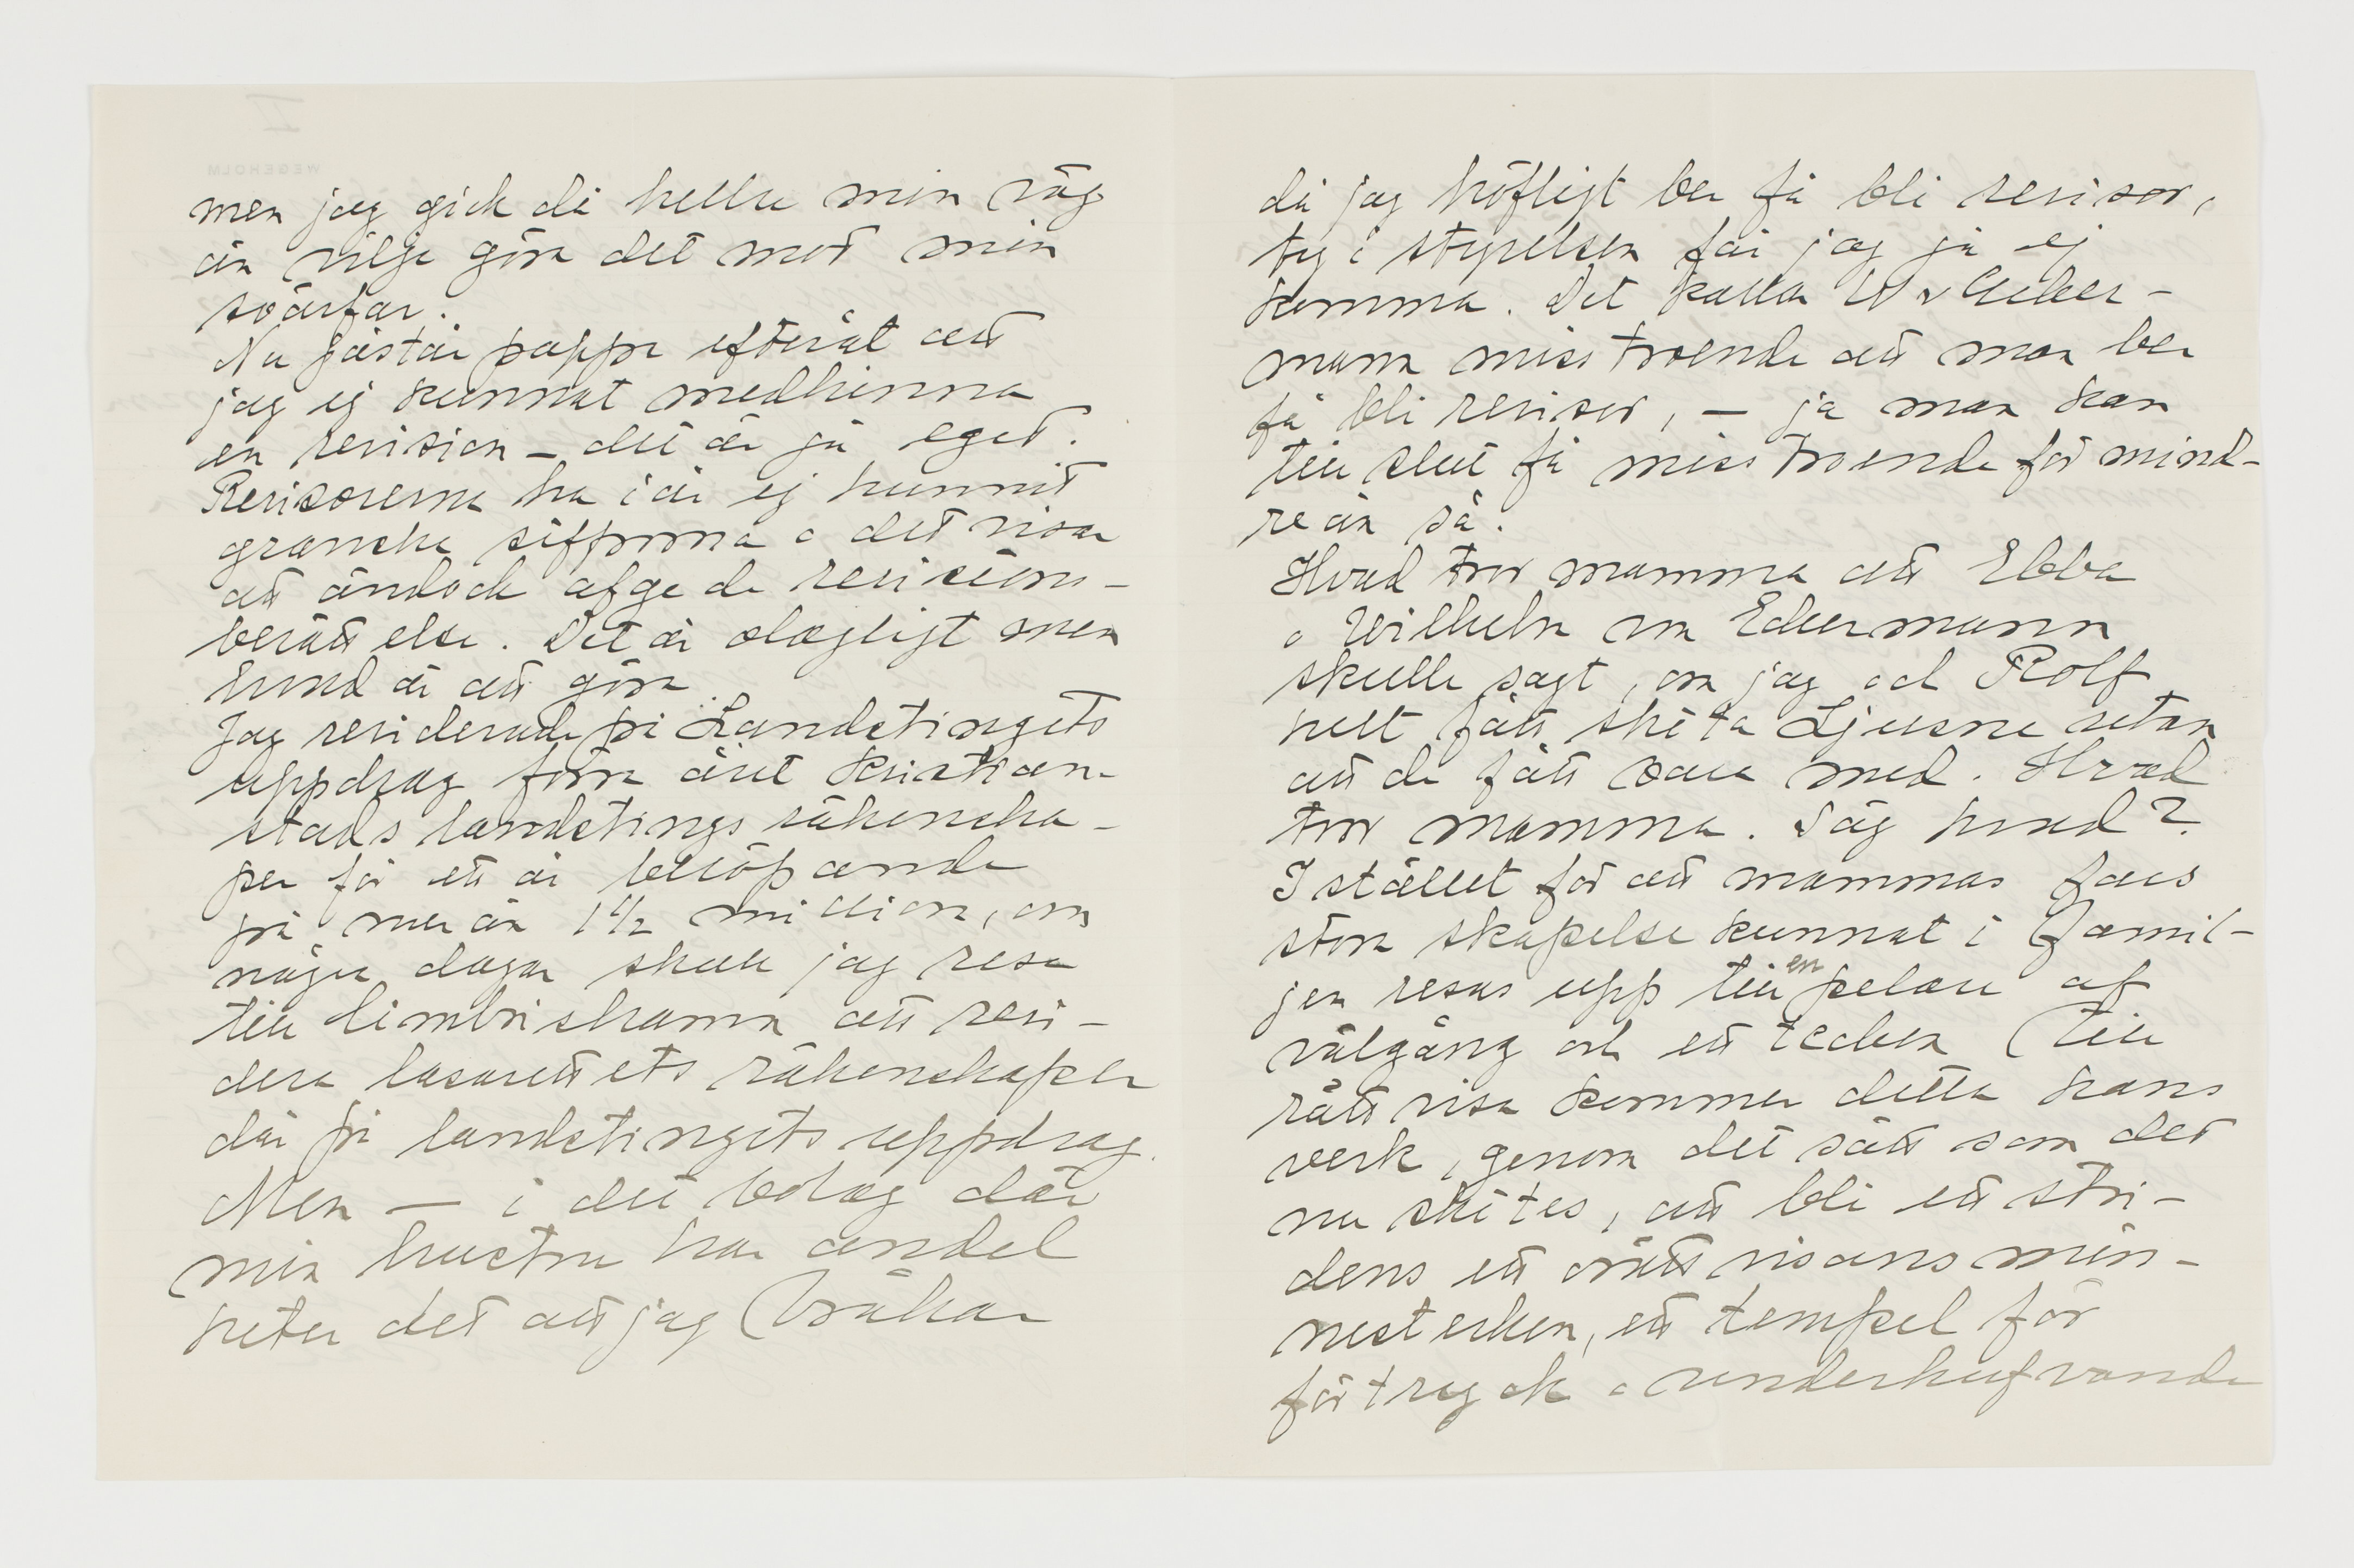 men jag gick då hellre min väg
än vilja göra det mot min
svärfar.
Nu påstår pappa efteråt att
jag ej kunnat medhinna
en revision – det är ju eget.
Revisorerna ha i år ej hunnit
granska siffrorna o det visar
att ändock afge de revisions-
berättelse. Det är olagligt men
hvad är att göra.
Jag reviderade på Landstingets
uppdrag förra året Kristian-
stads landstings räkenska-
per för ett år belöpande
på mer än 1 1/2 million, om
några dagar skall jag resa
till Cimbrishamn att revi-
dera lasarettets räkenskaper
där på landstingets uppdrag.
Men – i det bolag där
min hustru har andel
heter det att jag bråkar
då jag höfligt ber få bli revisor,
ty i styrelsen får jag ju ej
komma. Det kallar W v Ecker-
mann misstroende att man ber
få bli revisor, – ja man kan
till slut få misstroende för mind-
re än så.
Hvad tror mamma att Ebba
o Wilhelm von Eckermann
skulle sagt, om jag och Rolf
helt fått sköta Ljusne utan
att de fått vara med. Hvad
tror mamma. Säg hvad?
I stället för att mammas fars
stora skapelse kunnat i famil-
jen resas upp till en pelare af
välgång och ett tecken till
rättvisa kommer detta hans
verk, genom det sätt som det
nu skötes, att bli ett stri-
dens ett orättvisans min-
nestecken, ett tempel för
förtryck o underkufvande